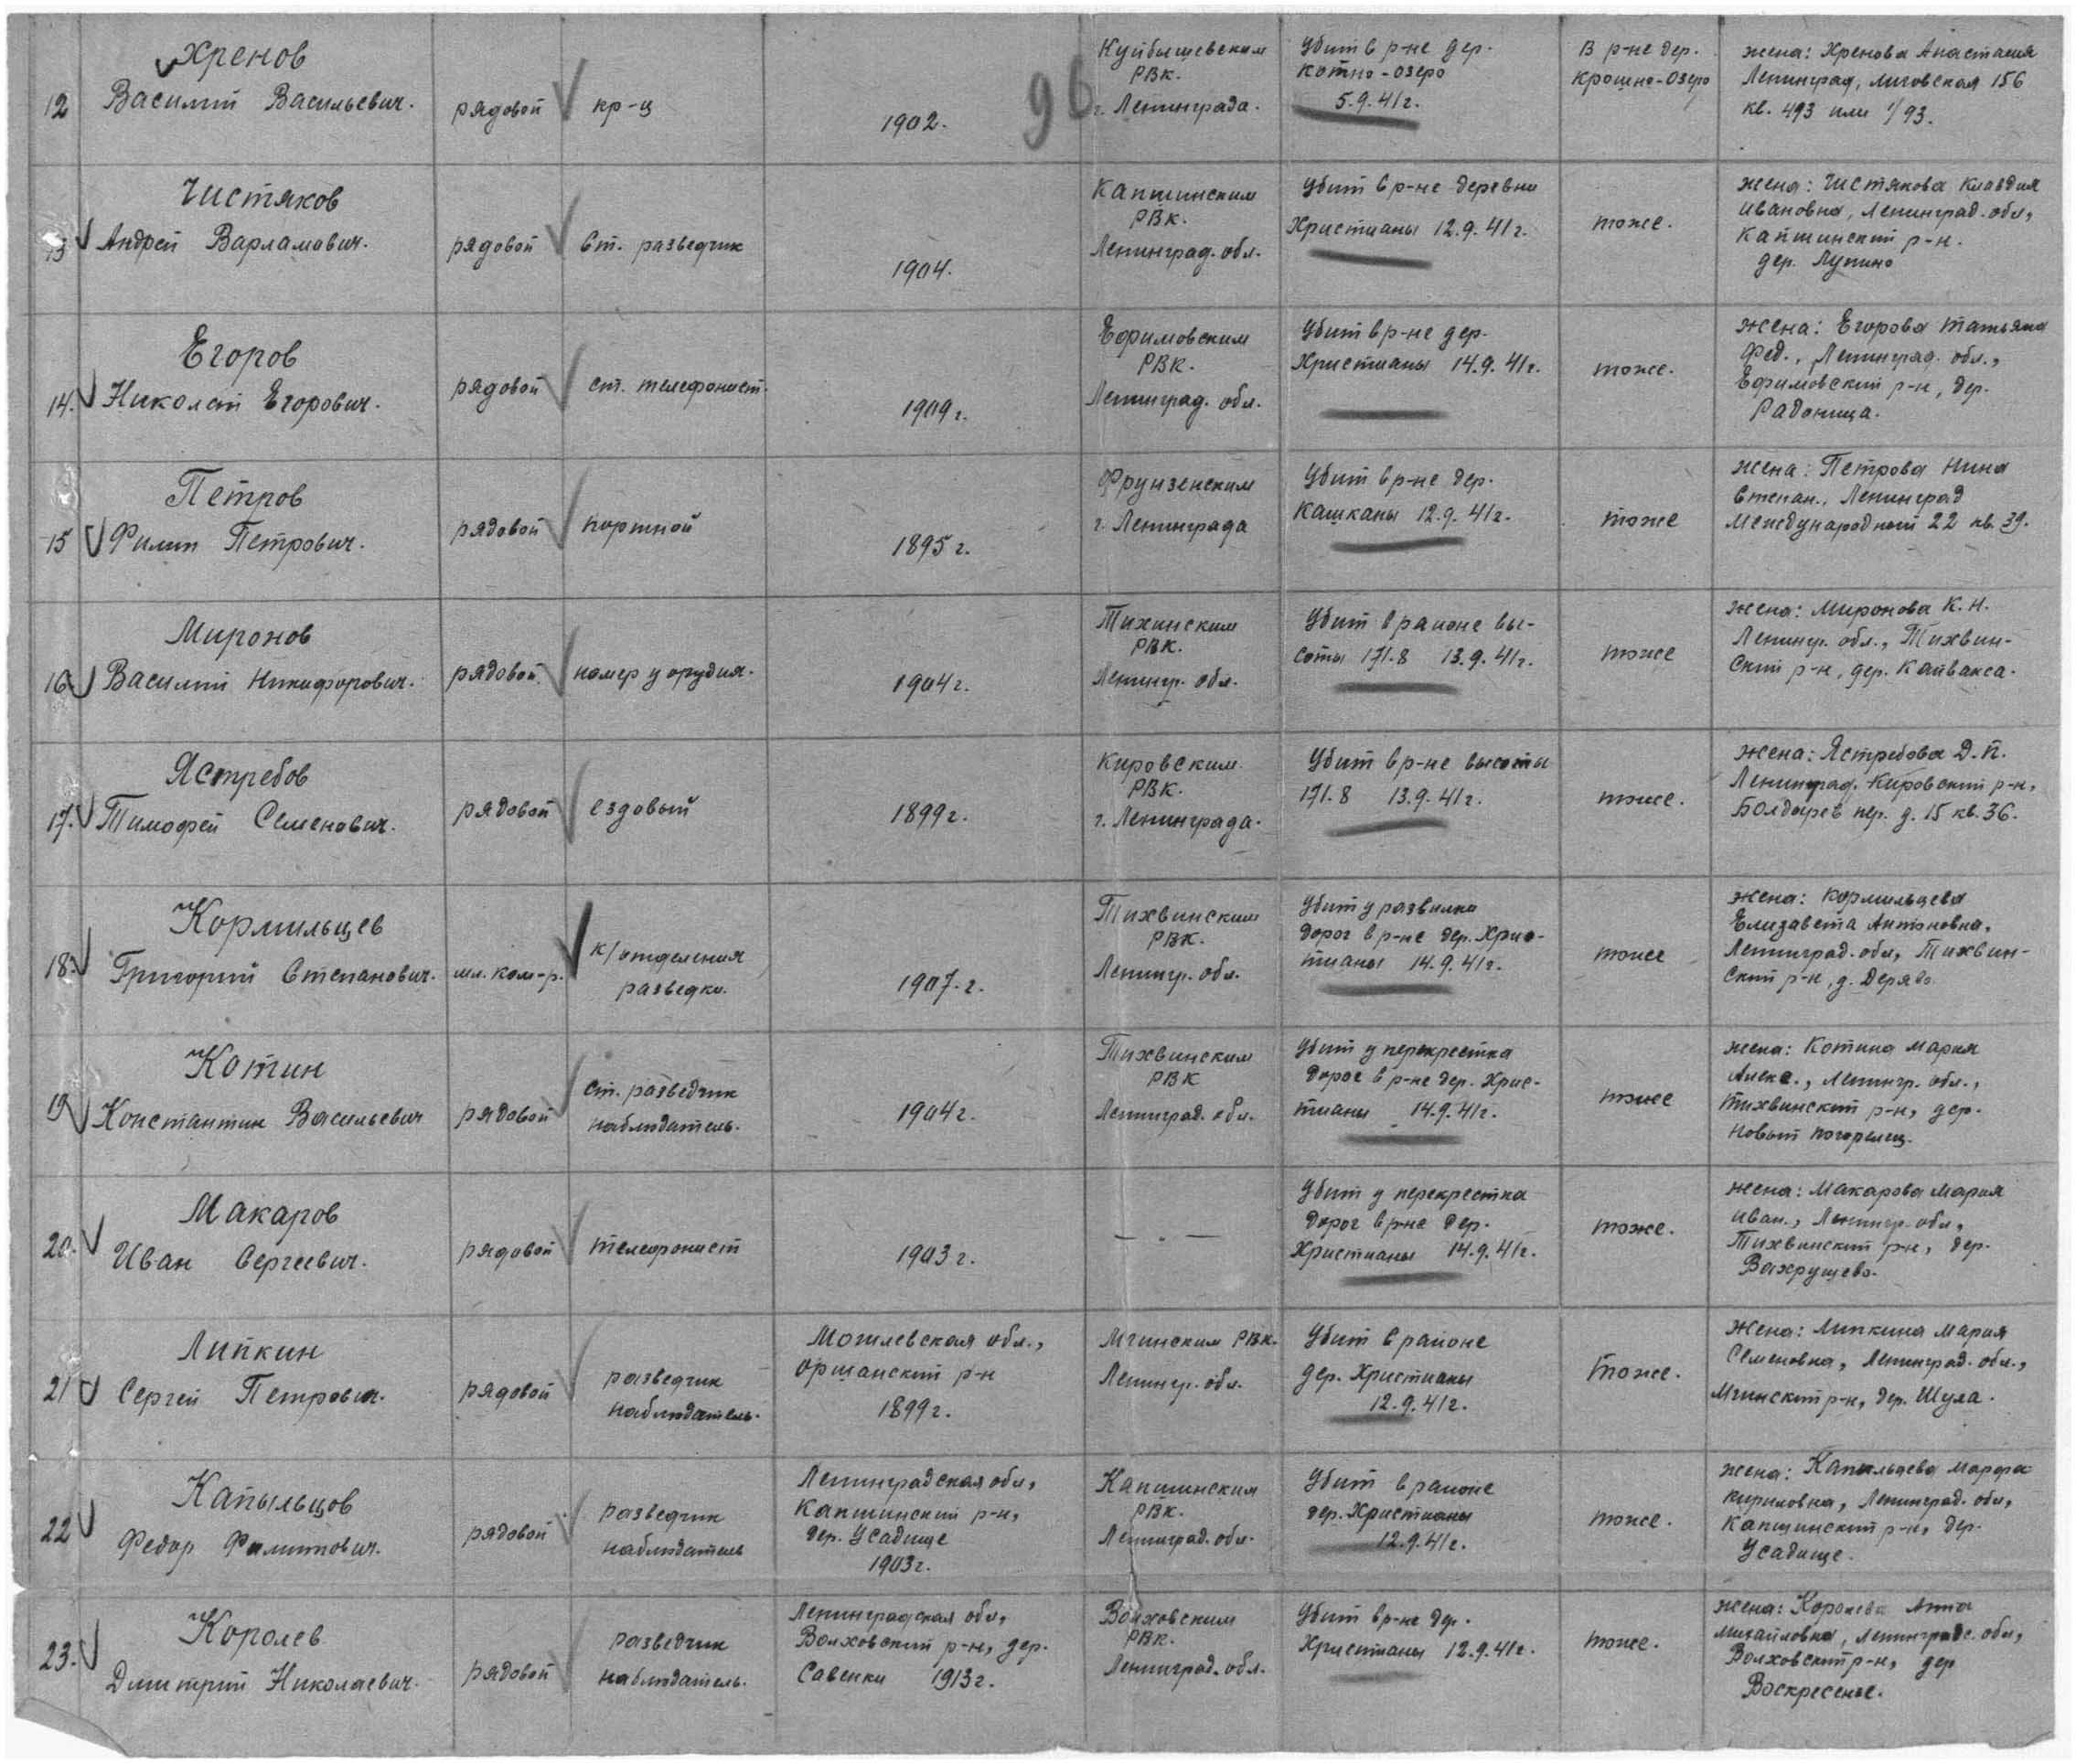 96
12
Хренов
Василий Васильевич.
рядовой
кр-ц
1902.
Куйбышевским
РВК.
г. Ленинграда.
Убит в р-не дер.
Котно-озеро
5.9.41г.
В р-не дер.
Крошно-озеро
жена: Хренова Анастасия
Ленинград, Лиговская 156
кв. 493 или 1/93.
13
Чистяков
Андрей Варламович.
рядовой
Ст. разведчик
1904.
Капшинским
РВК.
Ленинград. обл.
Убит в р-не деревни
Христианы 12.9.41г.
тоже.
жена: Чистякова Клавдия
Ивановна, Ленинград. обл,
Капшинский р-н.
дер. Лупино
14.
Егоров
Николай Егорович.
рядовой
ст. телефонист.
1909г.
Ефимовским
РВК.
Ленинград. обл.
Убит в р-не дер.
Христианы 14.9.41г.
тоже.
жена: Егорова Татьяна
Фед., Ленинград. обл.,
Ефимовский р-н, дер.
Радоница.
15
Петров
Филип Петрович.
рядовой
портной
1895г.
Фрунзенским
г. Ленинграда
Убит в р-не дер.
Кашканы 12.9.41г.
тоже
жена: Петрова Нина
Степан., Ленинград
Международный 22 кв. 39.
16
Миронов
Василий Никифорович.
рядовой.
номер у орудия.
1904г.
Тихинским
РВК.
Ленингр. обл.
Убит в районе вы-
соты 171.8 13.9.41г.
тоже
жена: Миронова К.Н.
Ленингр. обл., Тихвин-
ский р-н, дер. Кайвакса.
17.
Ястребов
Тимофей Семенович.
рядовой
ездовый
1899г.
Кировским
РВК.
г. Ленинграда.
Убит в р-не высоты
171.8 13.9.41г.
тоже.
жена: Ястребова Д.П.
Ленинград. Кировский р-н,
Болдырев пер. д. 15 кв. 36.
18.
Кормильцев
Григорий Степанович.
мл. ком-р.
к/отделения
разведки.
1907.г.
Тихвинским
РВК.
Ленингр. обл.
Убит у развилки
дорог в р-не дер. Хрис-
тианы 14.9.41г.
тоже
жена: Кормильцева
Елизавета Антоновна,
Ленинград. обл, Тихвин-
ский р-н, д. Дерево
19
Котин
Константин Васильевич
рядовой
ст. разведчик
наблюдатель.
1904г.
Тихвинским
РВК
Ленинград. обл.
Убит у перекрестка
дорог в р-не дер. Хрис-
тианы 14.9.41г.
тоже
жена: Котина Мария
Алекс., Ленингр. обл.,
Тихвинский р-н, дер.
Новый погорелец.
20.
Макаров
Иван Сергеевич.
рядовой
телефонист
1903г.
— . —
Убит у перекрестка
дорог в р-не дер.
Христианы 14.9.41г.
тоже.
жена: Макарова Мария
Иван., Ленингр. обл,
Тихвинский р-н, дер.
Вахрушево.
21
Липкин
Сергей Петрович.
рядовой
разведчик
наблюдатель.
Могилевская обл.,
Оршанский р-н
1899г.
Мгинским РВК.
Ленингр. обл.
Убит в районе
дер. Христианы
12.9.41г.
тоже.
Жена: Липкина Мария
Семеновна, Ленинград. обл.,
Мгинский р-н, дер. Шула.
22
Капыльцов
Федор Филиппович.
рядовой
разведчик
наблюдатель
Ленинградская обл,
Капшинский р-н,
дер. Усадище
1903г.
Капшинским
РВК.
Ленинград. обл.
Убит в районе
дер. Христианы
12.9.41г.
тоже.
жена: Капыльцева Марфа
Кириловна, Ленинград. обл,
Капшинский р-н, дер.
Усадище.
23.
Королев
Дмитрий Николаевич.
рядовой
разведчик
наблюдатель.
Ленинградская обл,
Волховский р-н, дер.
Савенки 1913г.
Волховским
РВК.
Ленинград. обл.
Убит в р-не дер.
Христианы 12.9.41г.
тоже.
жена: Королева Анна
Михайловна, Ленинградс. обл,
Волховский р-н, дер
Воскресенье.